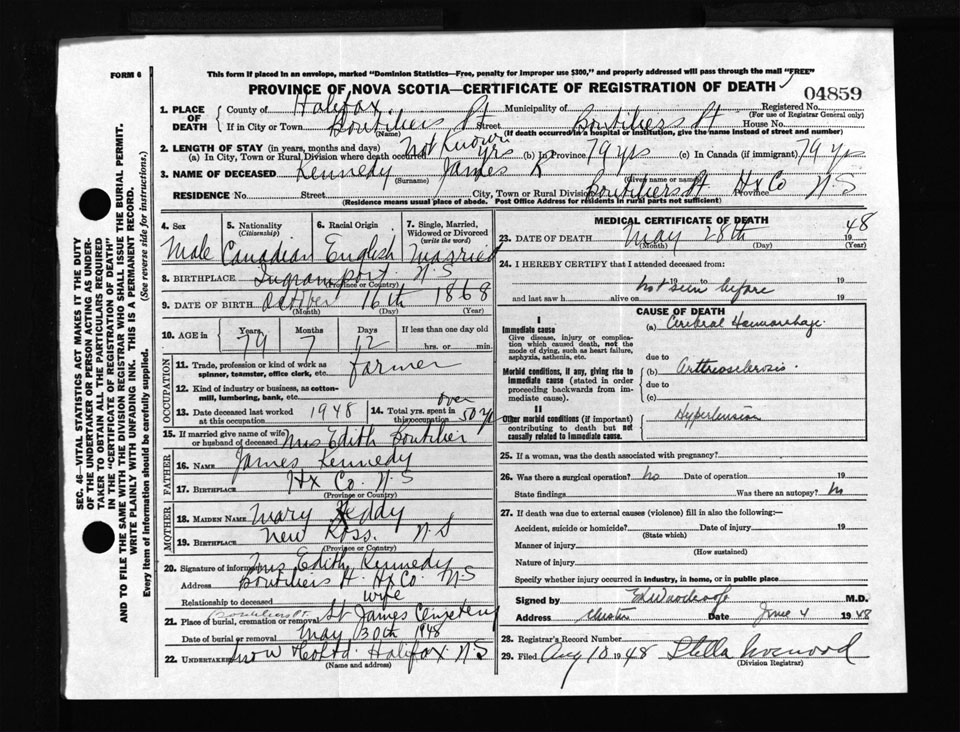 FORM 6
This form if placed in an envelope, marked "Dominion Statistics—Free, penalty for improper use $300," and properly addressed will pass through the mail "FREE"
PROVINCE OF NOVA SCOTIA—CERTIFICATE OF REGISTRATION OF DEATH
04859
1. PLACE OF DEATH
County of Halifax Municipality of Registered No.
(For use of Registrar General only)
If in City or Town Boutiliers Pt Street Boutiliers Pt House No.
(Name) (If death occurred in a hospital or institution, give the name instead of street and number)
2. LENGTH OF STAY (in years, months and days)
(a) In City, Town or Rural Division where death occurred Not Known yrs (b) In Province 79 yrs (c) In Canada (if immigrant) 79 yrs
3. NAME OF DECEASED Kennedy James K
(Surname) (Given name or names)
RESIDENCE No. Street City, Town or Rural Division Boutiliers Pt Hx Co Province N.S
(Residence means usual place of abode. Post Office Address for residents in rural parts not sufficient)
4. Sex Male
5. Nationality (Citizenship) Canadian
6. Racial Origin English
7. Single, Married, Widowed or Divorced (write the word) Married
8. BIRTHPLACE Ingramport. N.S
(Province or Country)
9. DATE OF BIRTH October 16th 1868
(Month) (Day) (Year)
10. AGE in Years 79 Months 7 Days 12 If less than one day old hrs. or min.
OCCUPATION
11. Trade, profession or kind of work as spinner, teamster, office clerk, etc. Farmer
12. Kind of industry or business, as cotton-mill, lumbering, bank, etc.
13. Date deceased last worked at this occupation 1948
14. Total yrs. spent in this occupation over 50 yrs
15. If married give name of wife or husband of deceased Mrs Edith Boutilier
FATHER
16. NAME James Kennedy
17. BIRTHPLACE Hx Co. N.S
(Province or Country)
MOTHER
18. MAIDEN NAME Mary Keddy
19. BIRTHPLACE New Ross. N.S
(Province or Country)
20. Signature of informant Mrs Edith Kennedy
Address Boutiliers Pt. Hx Co. N.S
Relationship to deceased wife
21. Place of burial, cremation or removal Boutiliers Pt St James Cemetery
Date of burial or removal May 30th 1948
22. UNDERTAKER Snow & Co Ltd. Halifax. N.S
(Name and address)
MEDICAL CERTIFICATE OF DEATH
23. DATE OF DEATH May 28th 1948
(Month) (Day) (Year)
24. I HEREBY CERTIFY that I attended deceased from:
19 to 19
not seen before
and last saw h alive on 19
CAUSE OF DEATH
I
Immediate cause
Give disease, injury or complication which caused death, not the mode of dying, such as heart failure, asphyxia, asthenia, etc.
(a) Cerebral Haemorrhage.
due to
Morbid conditions, if any, giving rise to immediate cause (stated in order proceeding backwards from immediate cause).
(b) Arteriosclerosis.
due to
(c)
II
Other morbid conditions (if important) contributing to death but not causally related to immediate cause.
Hypertension
25. If a woman, was the death associated with pregnancy?
26. Was there a surgical operation? no Date of operation 19
State findings Was there an autopsy? no
27. If death was due to external causes (violence) fill in also the following:—
Accident, suicide or homicide? Date of injury 19
(State which)
Manner of injury
(How sustained)
Nature of injury
Specify whether injury occurred in industry, in home, or in public place
Signed by M.D.
Address Chester Date June 4 1948
28. Registrar's Record Number
29. Filed Aug 10 1948 Stella
(Division Registrar)
SEC. 46—VITAL STATISTICS ACT MAKES IT THE DUTY
OF THE UNDERTAKER OR PERSON ACTING AS UNDERTAKER TO OBTAIN ALL THE PARTICULARS REQUIRED
IN THE "CERTIFICATE OF REGISTRATION OF DEATH"
AND TO FILE THE SAME WITH THE DIVISION REGISTRAR WHO SHALL ISSUE THE BURIAL PERMIT.
WRITE PLAINLY WITH UNFADING INK. THIS IS A PERMANENT RECORD.
Every item of information should be carefully supplied. (See reverse side for instructions.)